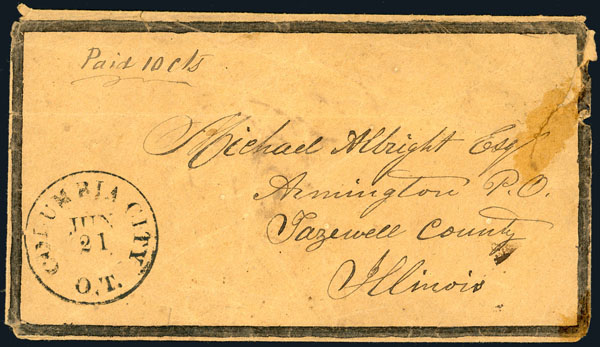 Paid 10 cts
Michael Albright Esq
Armington P.O.
Tazewell County
Illinois
COLUMBIA CITY
JUN
21
O.T.